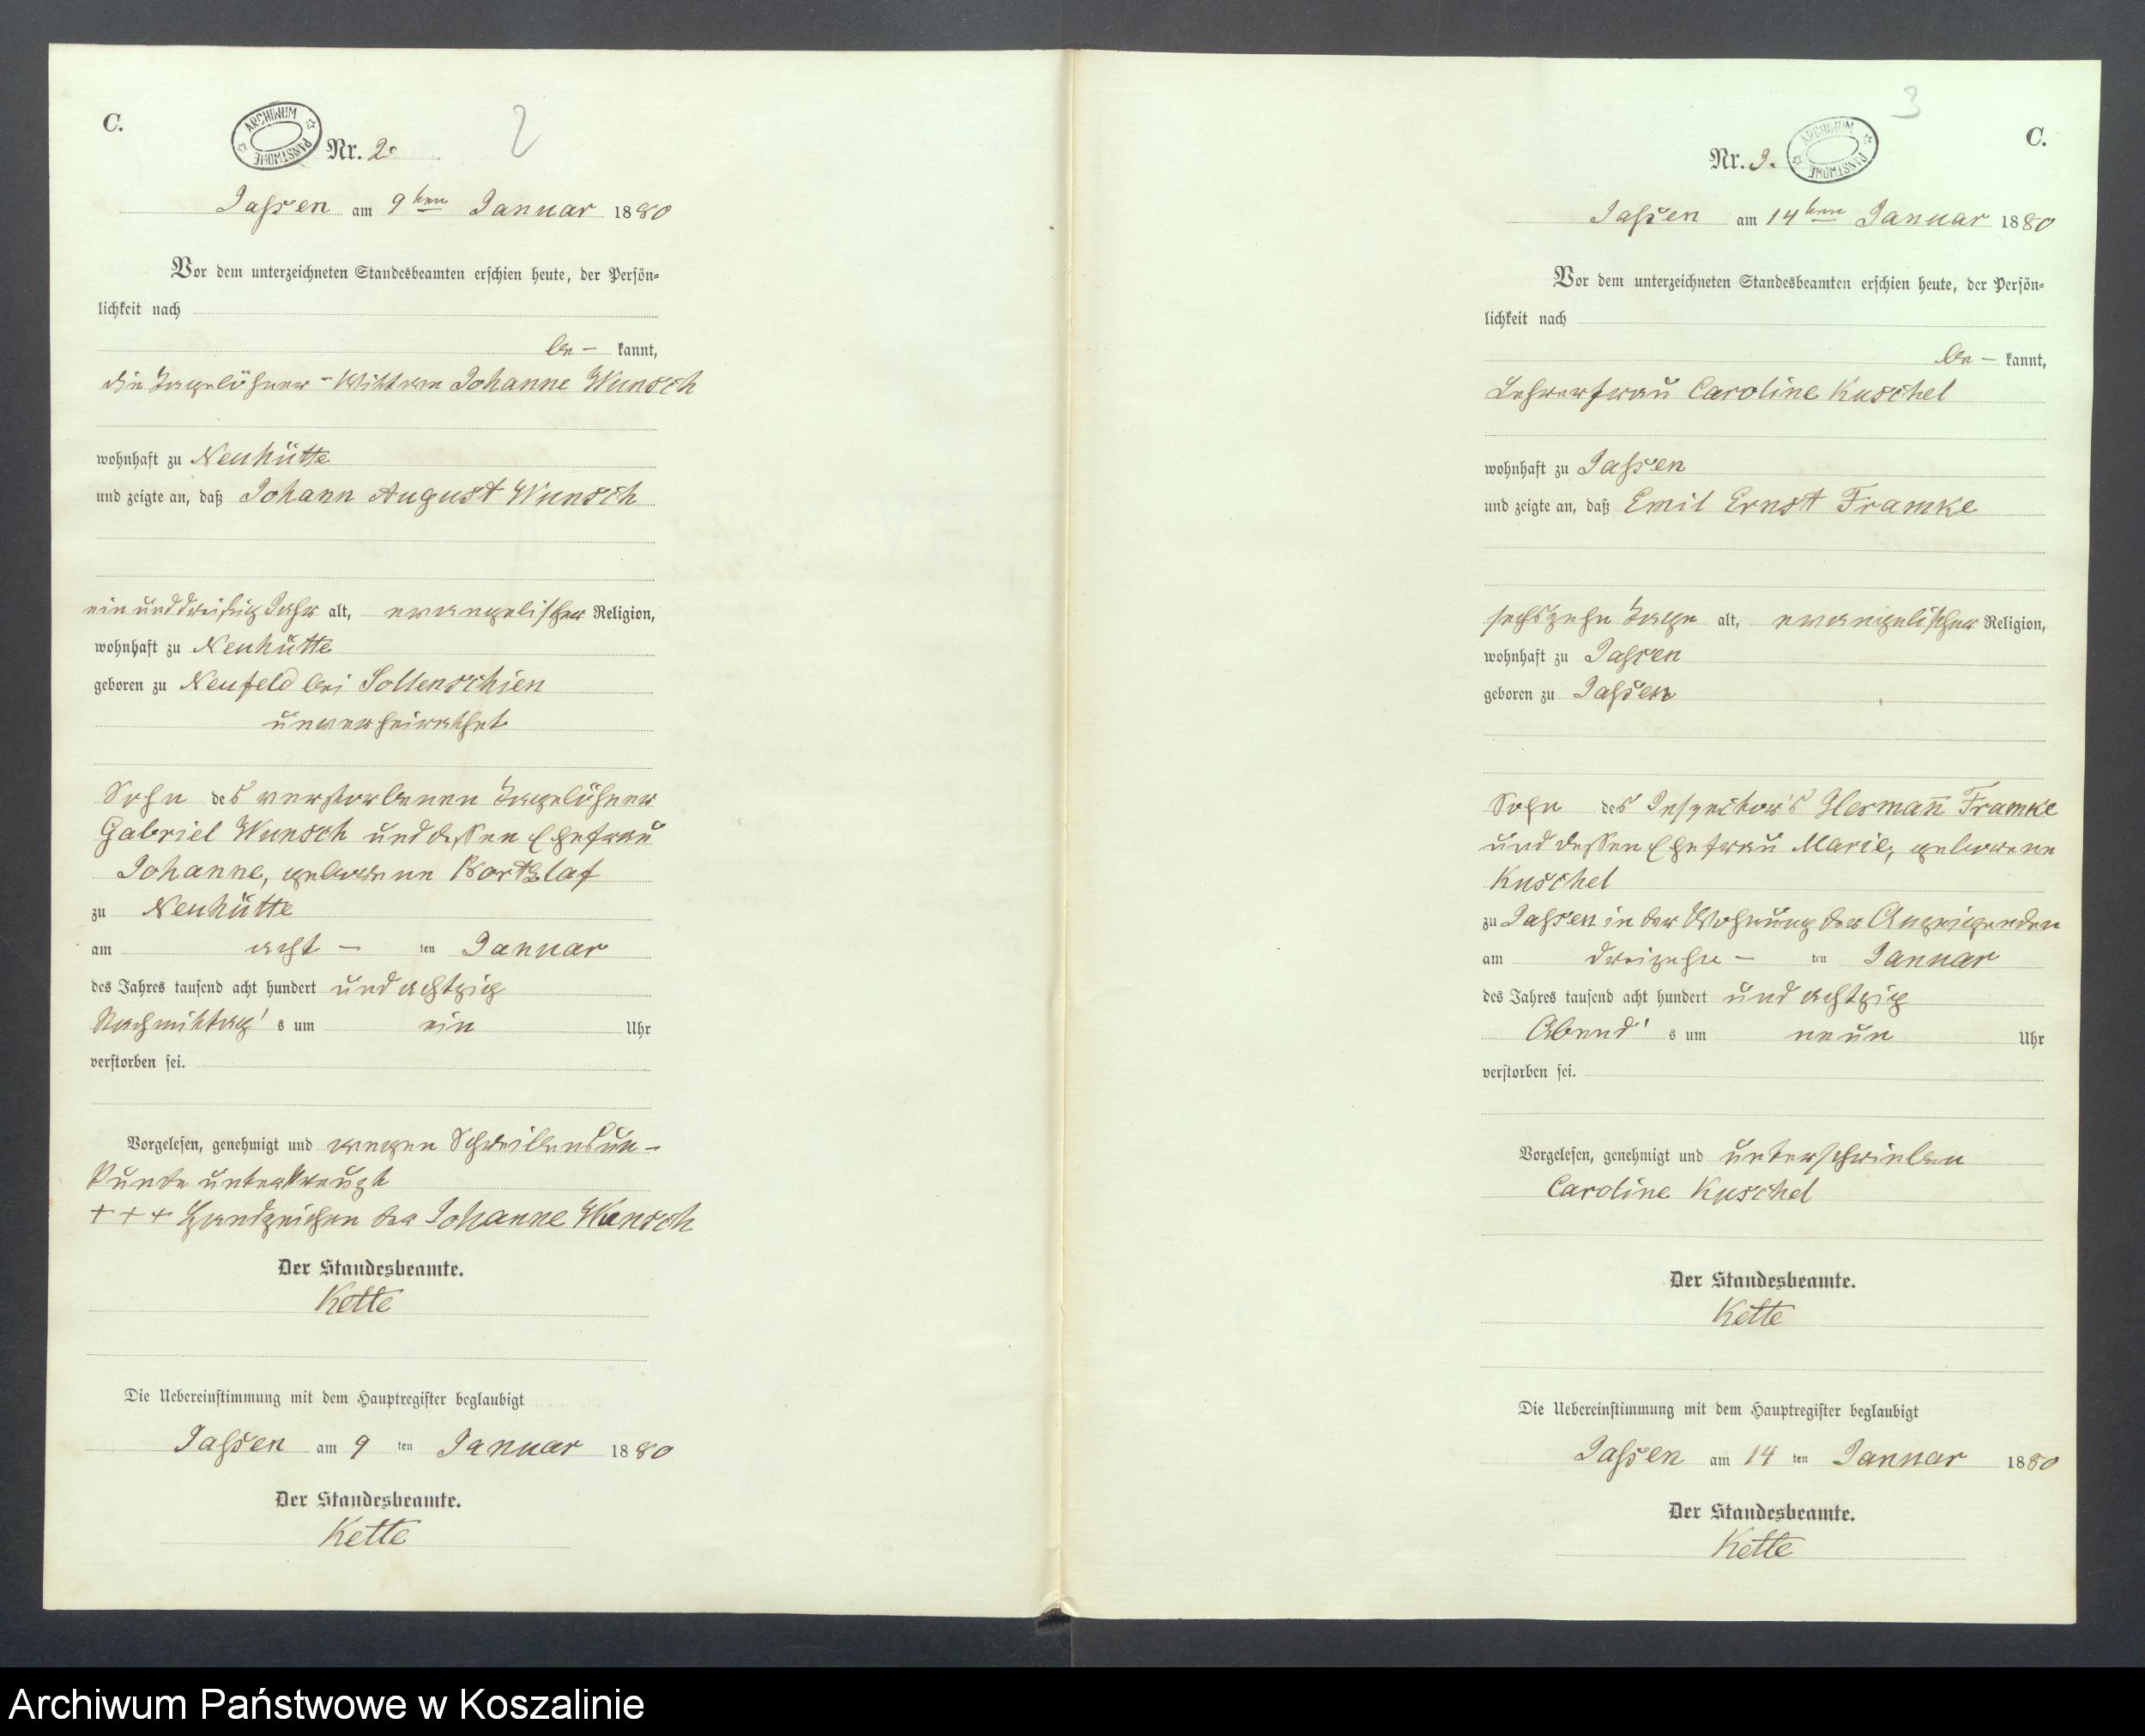 C.
ARCHIWUM PAŃSTWOWE
Nr. 2.
2
Jassen am 9ten Januar 1880
Vor dem unterzeichneten Standesbeamten erschien heute, der Persön-
lichkeit nach
be- kannt,
die Tagelöhner-Wittwe Johanne Wunsch
wohnhaft zu Neuhütte
und zeigte an, daß Johann August Wunsch
ein und dreißig Jahr alt, evangelischer Religion,
wohnhaft zu Neuhütte
geboren zu Neufeld bei Sollenschien
unverheirathet
Sohn des verstorbenen Tagelöhner
Gabriel Wunsch und dessen Ehefrau
Johanne, geborene
zu Neuhütte
am acht- ten Januar
des Jahres tausend acht hundert und achtzig
Nachmittag's um ein Uhr
verstorben sei.
Vorgelesen, genehmigt und wegen Schreibensun-
kunde unterkreuzt
+++ Handzeichen der Johanne Wunsch
Der Standesbeamte.
Kette
Die Uebereinstimmung mit dem Hauptregister beglaubigt
Jassen am 9 ten Januar 1880
Der Standesbeamte.
Kette
3
C.
Nr. 3.
ARCHIWUM PAŃSTWOWE
Jassen am 14ten Januar 1880
Vor dem unterzeichneten Standesbeamten erschien heute, der Persön-
lichkeit nach
be- kannt,
Lehrerfrau Caroline Kuschel
wohnhaft zu Jassen
und zeigte an, daß Emil Ernst Framke
sechszehn Tage alt, evangelischer Religion,
wohnhaft zu Jassen
geboren zu Jassen
Sohn des Inspector's Hermann̄ Framke
und dessen Ehefrau Marie, geborene
Kuschel
zu Jassen in der Wohnung der Anzeigenden
am dreizehn- ten Januar
des Jahres tausend acht hundert und achtzig
Abend's um neun Uhr
verstorben sei.
Vorgelesen, genehmigt und unterschrieben
Caroline Kuschel
Der Standesbeamte.
Kette
Die Uebereinstimmung mit dem Hauptregister beglaubigt
Jassen am 14 ten Januar 1880
Der Standesbeamte.
Kette
Archiwum Państwowe w Koszalinie